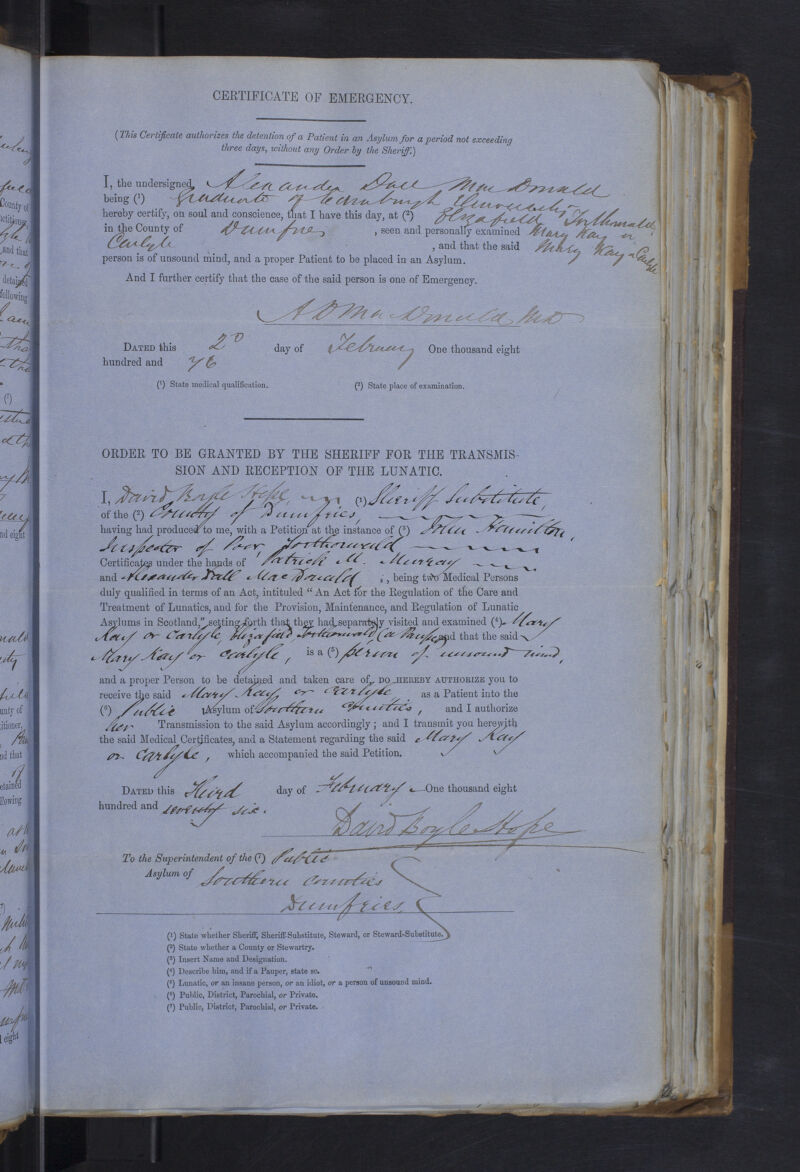 CERTIFICATE OF EMERGENCY.
(This Certificate authorizes the detention of a Patient in an Asylum for a period not exceeding
three days, without any Order by the Sheriff.)
I, the undersigned, Alexander Dall MacDonald
being (1) Graduate of Edinburgh University
hereby certify, on soul and conscience, that I have this day, at (2) Elizafield Torthorwald
in the County of Dumfries, seen and personally examined Mary Kay or
Carlyle, and that the said Mary Kay or Carlyle
person is of unsound mind, and a proper Patient to be placed in an Asylum.
And I further certify that the case of the said person is one of Emergency.
A D MacDonald MD
DATED this 2d day of February One thousand eight
hundred and 76
(1) State medical qualification. (2) State place of examination.
ORDER TO BE GRANTED BY THE SHERIFF FOR THE TRANSMIS-
SION AND RECEPTION OF THE LUNATIC.
I, David Boyle Hope (1) Sheriff Substitute,
of the (2) County of Dumfries,
having had produced to me, with a Petition at the instance of (3) John Hamilton,
Inspector of Poor, Torthorwald
Certificates under the hands of Patrick M. Murray
and Alexander Dall MacDonald, being two Medical Persons
duly qualified in terms of an Act, intituled "An Act for the Regulation of the Care and
Treatment of Lunatics, and for the Provision, Maintenance, and Regulation of Lunatic
Asylums in Scotland," setting forth that they had separately visited and examined (4) Mary
Kay or Carlyle, Elizafield Torthorwald (a Pauper) and that the said
Mary Kay or Carlyle, is a (5) person of unsound mind,
and a proper Person to be detained and taken care of, DO HEREBY AUTHORIZE you to
receive the said Mary Kay or Carlyle as a Patient into the
(6) Public Asylum of Southern Counties, and I authorize
her Transmission to the said Asylum accordingly; and I transmit you herewith
the said Medical Certificates, and a Statement regarding the said Mary Kay
or Carlyle, which accompanied the said Petition.
DATED this Third day of February One thousand eight
hundred and seventy six.
David Boyle Hope
To the Superintendent of the (7) Public
Asylum of Southern Counties
Dumfries
(1) State whether Sheriff, Sheriff-Substitute, Steward, or Steward-Substitute.
(2) State whether a County or Stewartry.
(3) Insert Name and Designation.
(4) Describe him, and if a Pauper, state so.
(5) Lunatic, or an insane person, or an idiot, or a person of unsound mind.
(6) Public, District, Parochial, or Private.
(7) Public, District, Parochial, or Private.